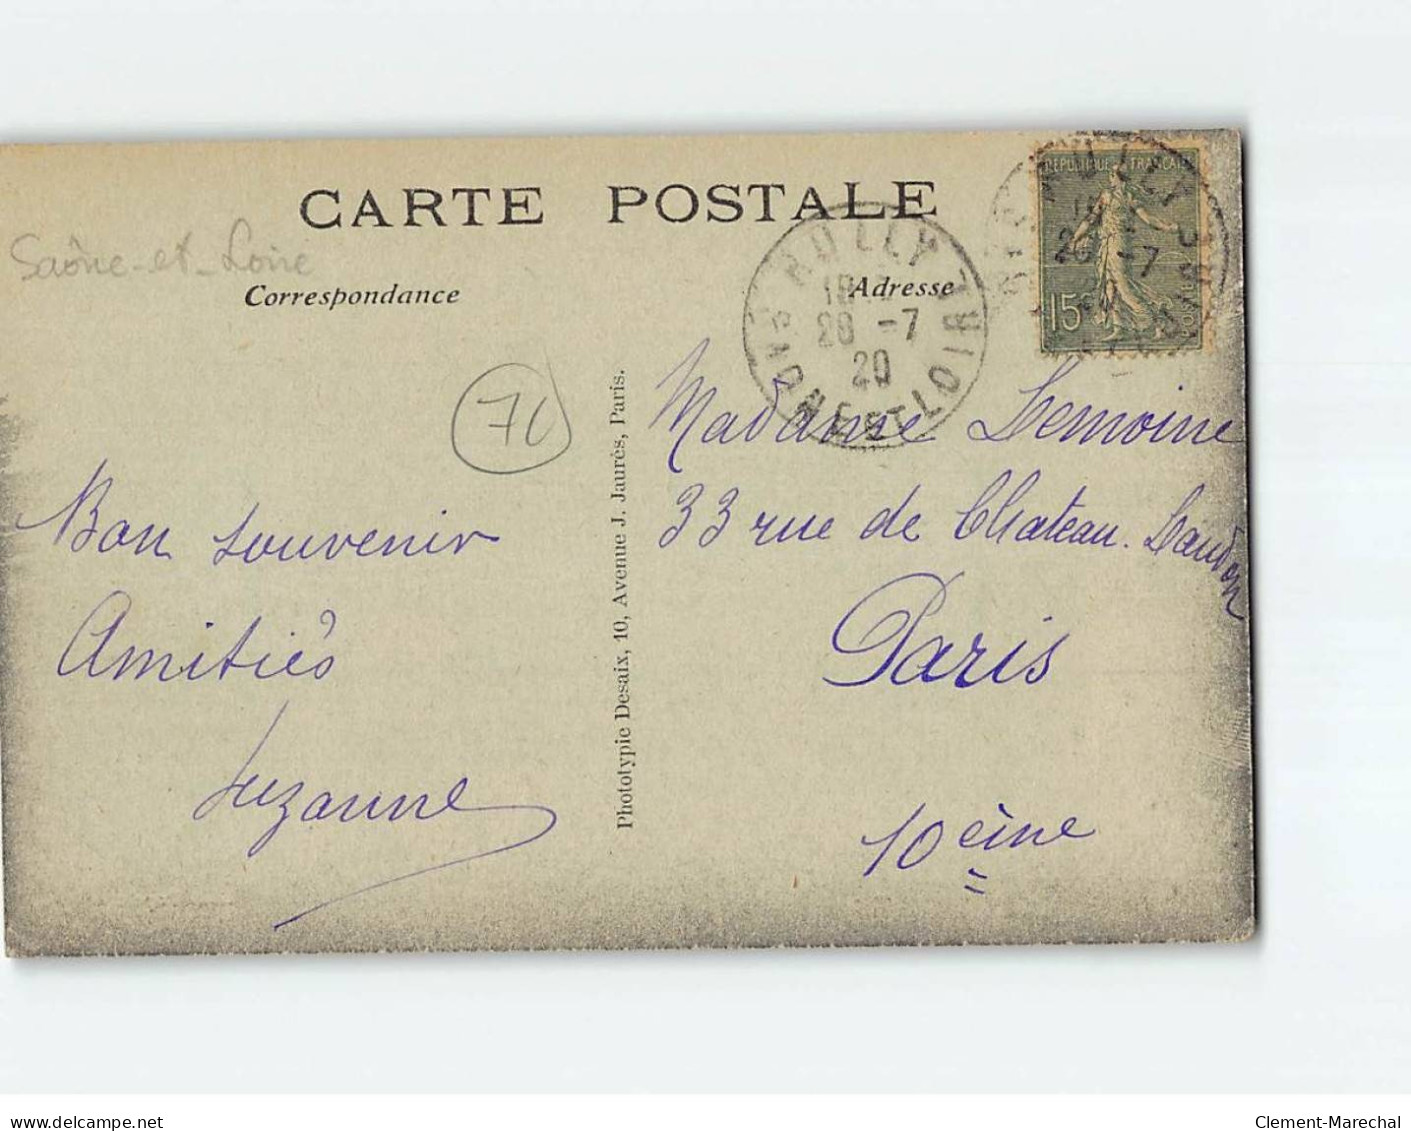 CARTE POSTALE
Saône-et-Loire
Correspondance
Adresse
RULLY
28 -7
20
SAONE ET LOIRE
REPUBLIQUE FRANÇAISE
15
71
Bon souvenir
Amitiés
Suzanne
Phototypie Desaix, 10, Avenue J. Jaurès, Paris.
Madame Lemoine
33 rue de Chateau-Landon
Paris
10 eine
delcampe.net
Clement-Marechal